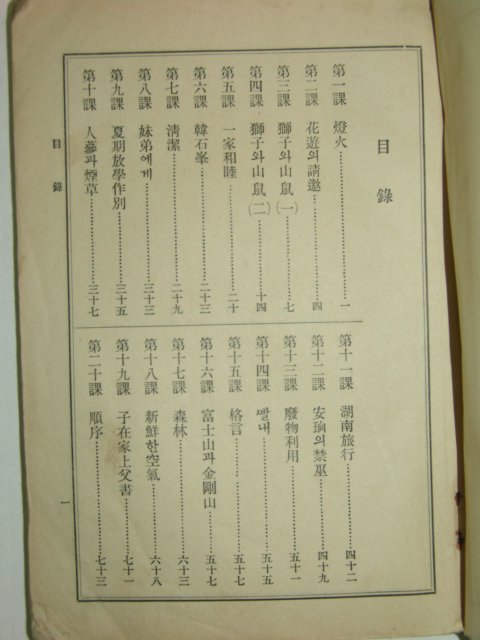 目錄
第一課 燈火 一
第二課 花遊의請邀 四
第三課 獅子와山鼠(一) 七
第四課 獅子와山鼠(二) 十四
第五課 一家和睦 二十
第六課 韓石峯 二十三
第七課 淸潔 二十九
第八課 妹弟에게 三十三
第九課 夏期放學作別 三十五
第十課 人蔘과煙草 三十七
第十一課 湖南旅行 四十二
第十二課 安珦의禁巫 四十九
第十三課 廢物利用 五十一
第十四課 ᄲᅡᆯ내 五十五
第十五課 格言 五十七
第十六課 富士山과金剛山 五十七
第十七課 森林 六十三
第十八課 新鮮한空氣 六十八
第十九課 子在家上父書 七十一
第二十課 順序 七十三
目錄
一